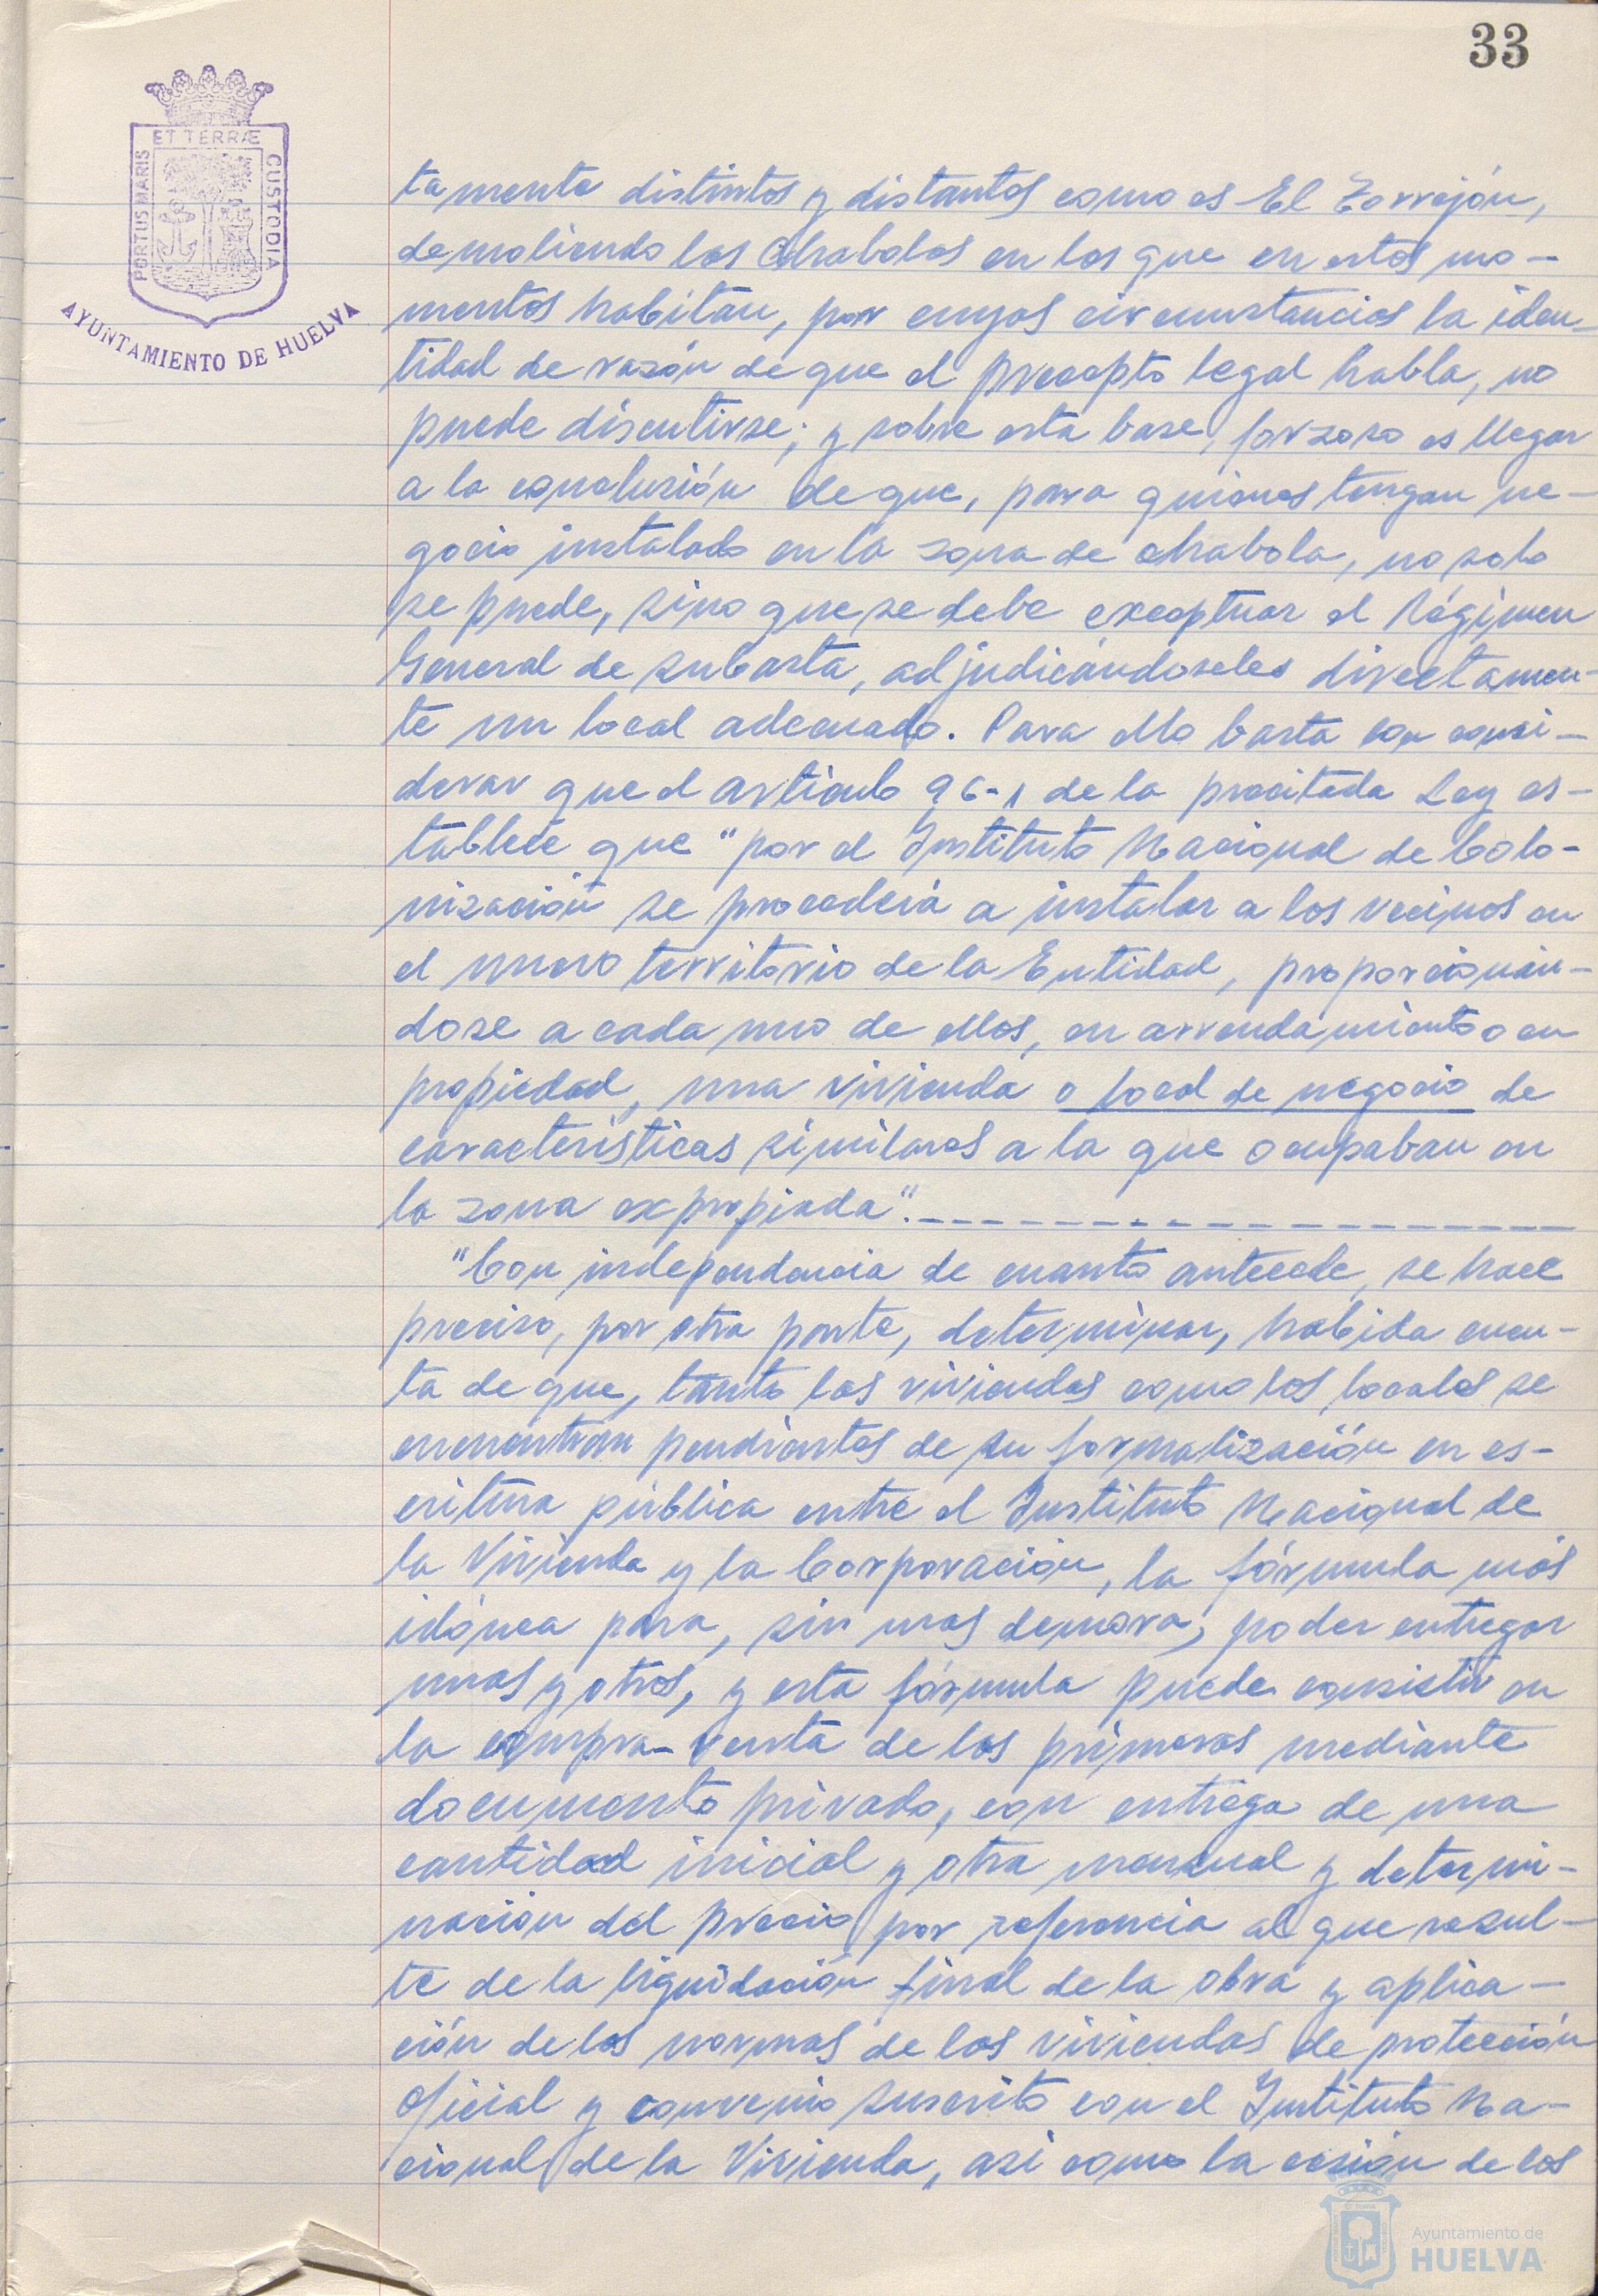 33
ET TERRÆ
PORTUS MARIS
CUSTODIA
AYUNTAMIENTO DE HUELVA
tamente distintos y distantes como es El Torrejón,
demoliendo las Chabolas en las que en estos mo-
mentos habitan, por cuyas circunstancias la iden-
tidad de razón de que el precepto legal habla, no
puede discutirse; y sobre esta base, forzoso es llegar
a la conclusión de que, para quienes tengan ne-
gocio instalado en la zona de chabola, no solo
se puede, sino que se debe exceptuar el Régimen
General de subasta, adjudicándoseles directamen-
te un local adecuado. Para ello basta con consi-
derar que el artículo 96-1 de la precitada Ley es-
tablece que "por el Instituto Nacional de Colo-
nización se procederá a instalar a los vecinos en
el nuevo territorio de la Entidad, proporcionán-
dose a cada uno de ellos, en arrendamiento o en
propiedad, una vivienda o local de negocio de
características similares a la que ocupaban en
la zona expropiada".
"Con independencia de cuanto antecede, se hace
preciso, por otra parte, determinar, habida cuen-
ta de que, tanto las viviendas como los locales se
encuentran pendientes de su formalización en es-
critura pública entre el Instituto Nacional de
la Vivienda y la Corporación, la fórmula más
idónea para, sin mas demora, poder entregar
unas y otros, y esta fórmula puede consistir en
la compra-venta de las primeras mediante
documento privado, con entrega de una
cantidad inicial y otra mensual y determi-
nación del precio por referencia al que resul-
te de la liquidación final de la obra y aplica-
ción de las normas de las viviendas de protección
oficial y convenio suscrito con el Instituto Na-
cional de la Vivienda, asi como la cesión de los
Ayuntamiento de
HUELVA